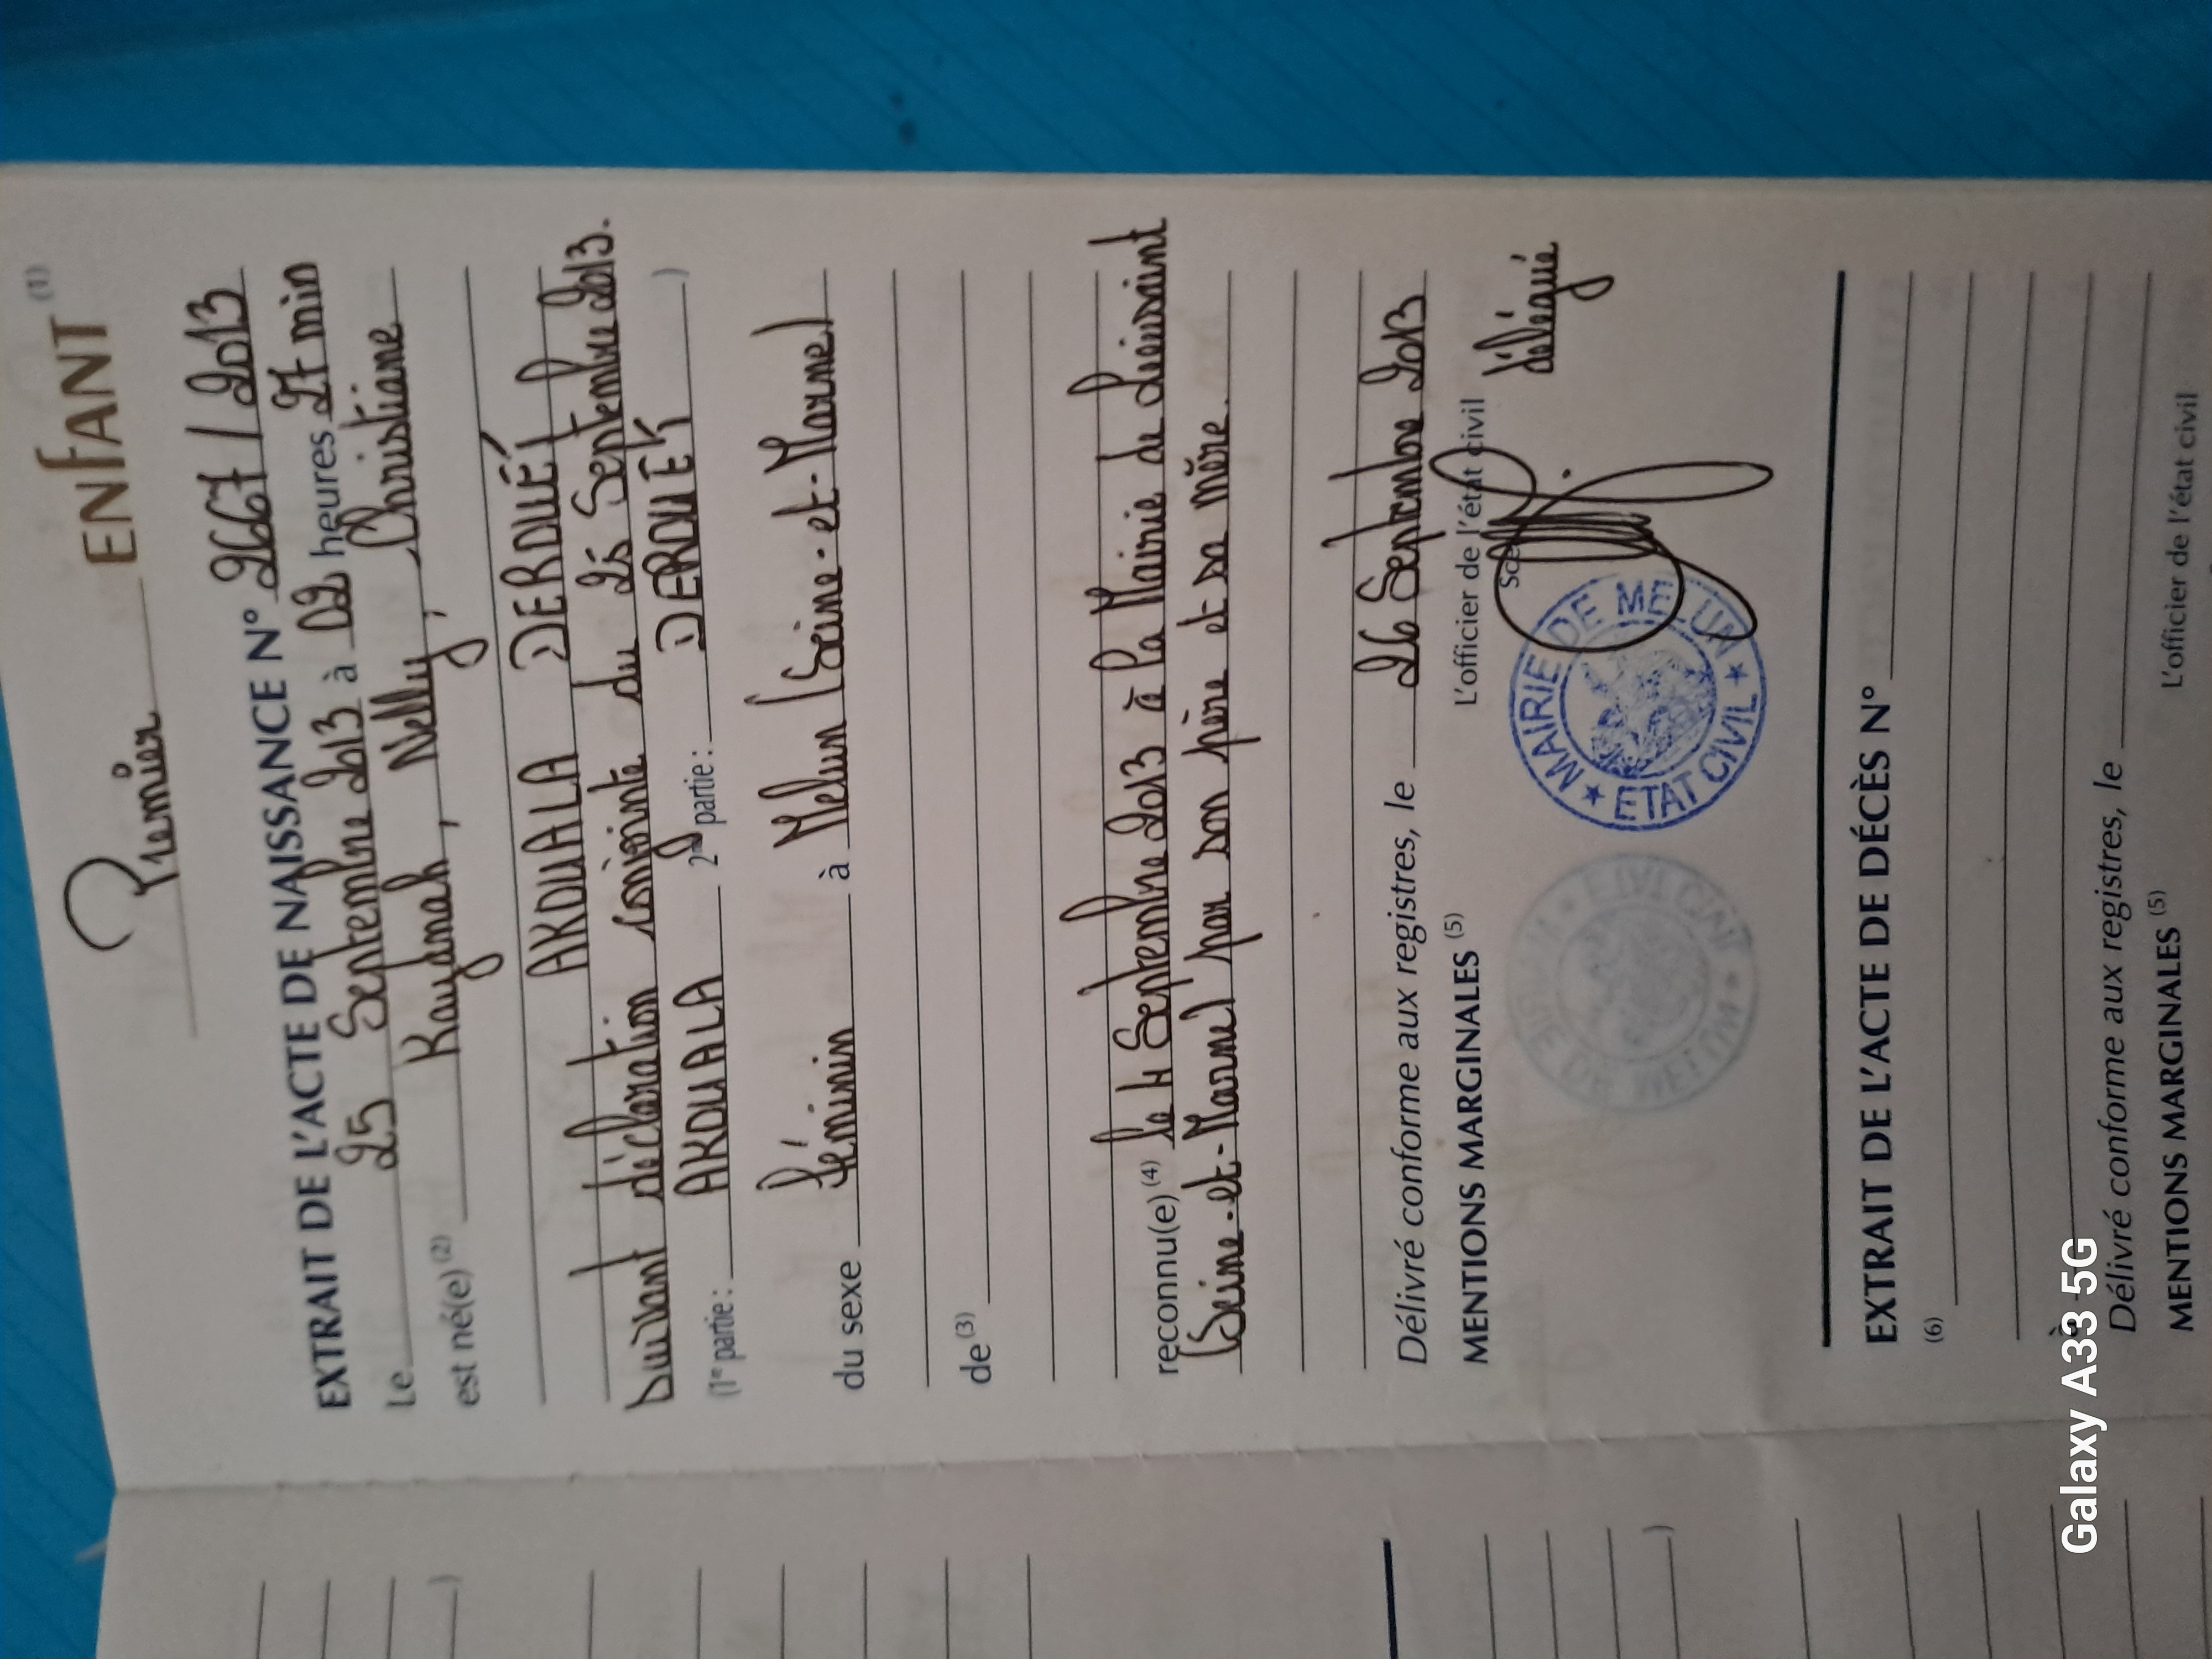 Premier ENFANT (1)
EXTRAIT DE L'ACTE DE NAISSANCE N° 2667 / 2013
Le 25 Septembre 2013 à 02 heures 27 min
est né(e) (2) Kayanah, Nelly, Christiane
AKOUALA DEROUÉ
suivant déclaration conjointe du 25 Septembre 2013.
(1re partie : AKOUALA 2nde partie : DEROUEK )
du sexe féminin à Melun (Seine-et-Marne)
de (3)
reconnu(e) (4) le 4 Septembre 2013 à la Mairie de
(Seine-et-Marne) par son père et sa mère.
Délivré conforme aux registres, le 26 Septembre 2013
MENTIONS MARGINALES (5) L'officier de l'état civil
délégué
MAIRIE DE MELUN
★ ETAT CIVIL ★
EXTRAIT DE L'ACTE DE DÉCÈS N°
(6)
À
Délivré conforme aux registres, le
MENTIONS MARGINALES (5) L'officier de l'état civil
Galaxy A33 5G